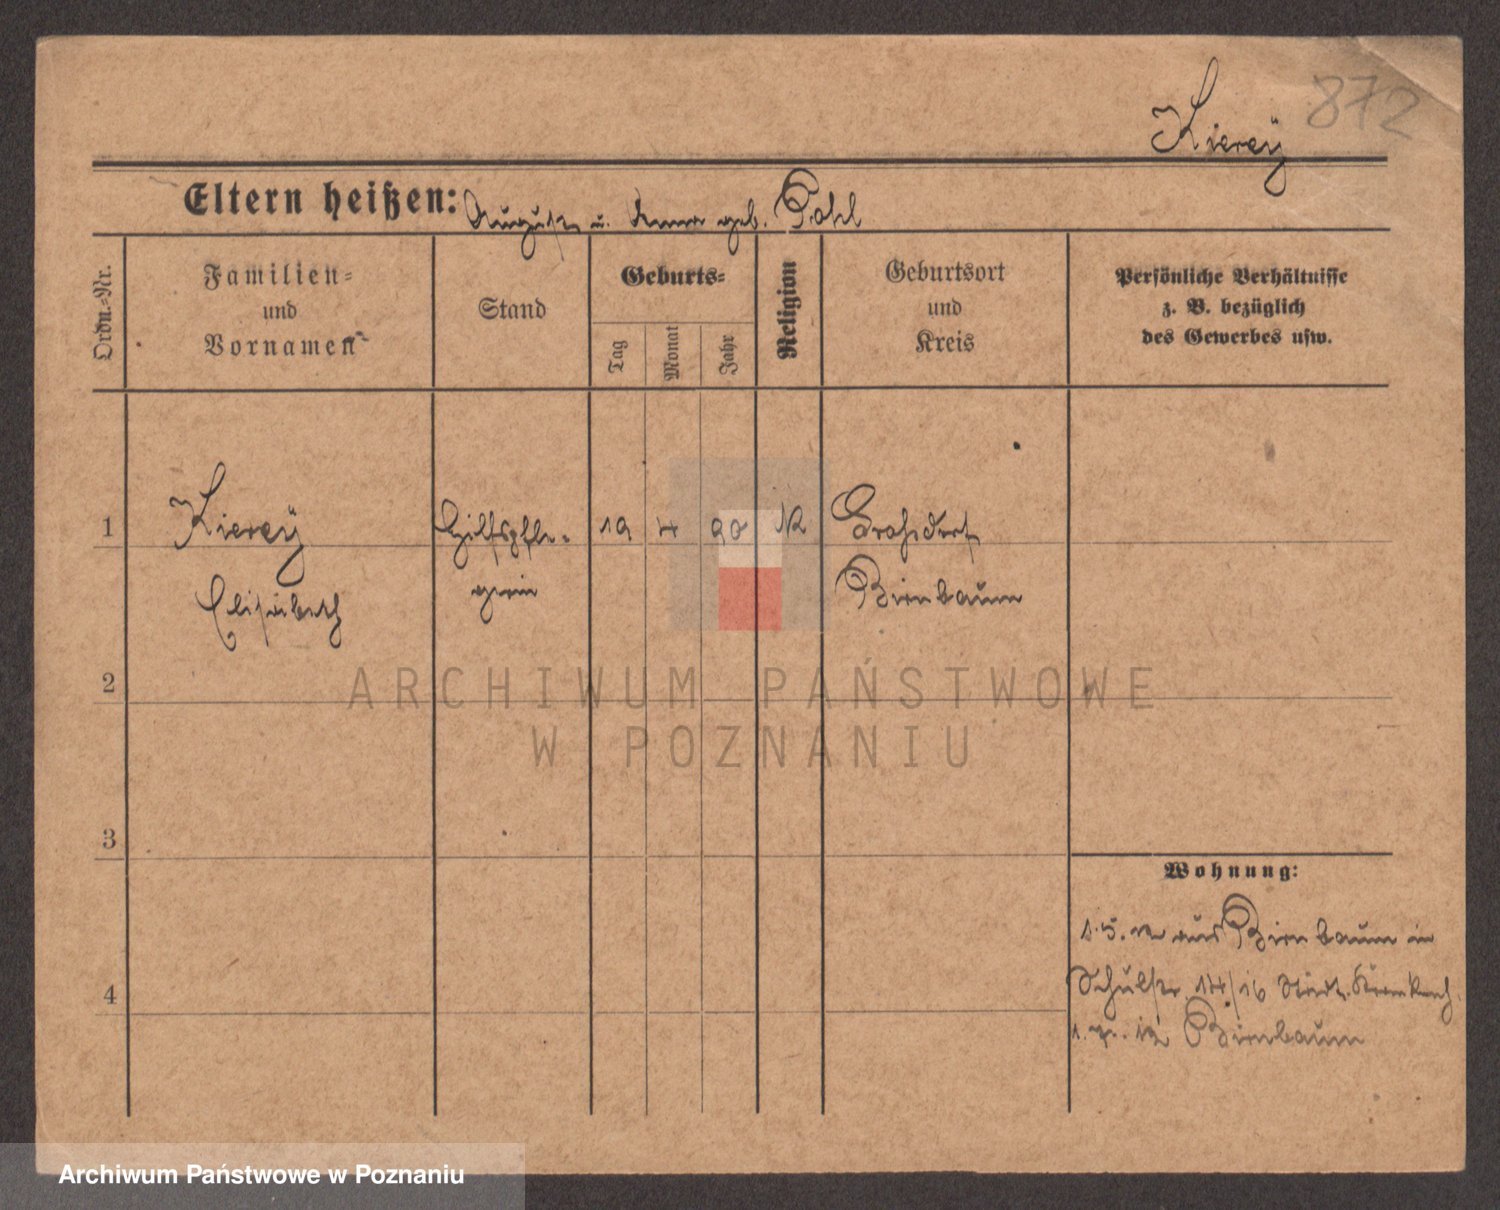 872
Kierey
Eltern heißen: August u. Anna geb. Pohl
Ordn.-Nr.
Familien-
und
Vornamen
Stand
Geburts-
Tag
Monat
Jahr
Religion
Geburtsort
und
Kreis
Persönliche Verhältnisse
z. B. bezüglich
des Gewerbes usw.
1 Kierey Hilfspfle- 19 4 90 Großdorf
Elisabeth gerin Birnbaum
2
ARCHIWUM PAŃSTWOWE
W POZNANIU
3
Wohnung:
1.5. aus Birnbaum in
Schulstr. 14/16 Städt. Krankenh.
4
1. Birnbaum
Archiwum Państwowe w Poznaniu